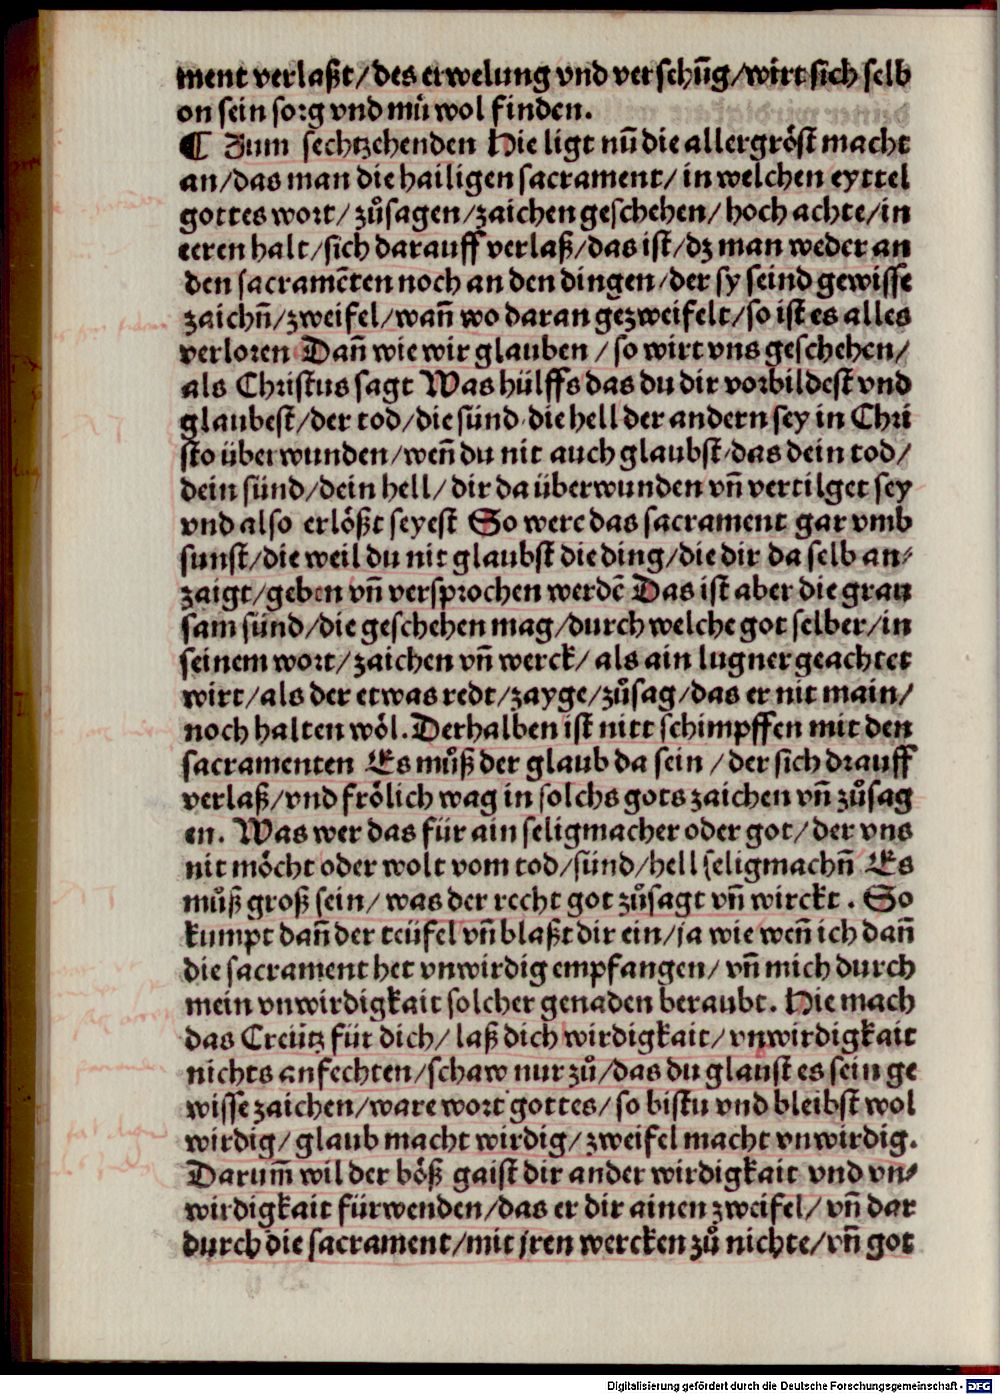 ment verlaßt/des erwelung vnd verschūg/wirt sich selb
on sein sorg vnd mů wol finden.
¶ Zum sechtzehenden Hie ligt nū die allergröst macht
an/das man die hailigen sacrament/ in welchen eyttel
gottes wort/ zůsagen/zaichen geschehen/ hoch achte/in
eeren halt/sich darauff verlaß/das ist/dz man weder an
den sacramēten noch an den dingen/der sy seind gewisse
zaichñ/zweifel/wañ wo daran gezweifelt/so ist es alles
verloren Dañ wie wir glauben / so wirt vns geschehen/
als Christus sagt Was hülffs das du dir vorbildest vnd
glaubest/der tod/die sünd die hell der andern sey in Chri
sto überwunden/weñ du nit auch glaubst/das dein tod/
dein sünd/dein hell/ dir da überwunden vñ vertilget sey
vnd also erlößt seyest So were das sacrament gar vmb
sunst/die weil du nit glaubst die ding/die dir da selb an⸗
zaigt/geben vñ versprochen werdē Das ist aber die grau
sam sünd/die geschehen mag/durch welche got selber/in
seinem wort/ zaichen vñ werck/ als ain lugner geachtet
wirt/als der etwas redt/zayge/zůsag/das er nit main/
noch halten wöl. Derhalben ist nitt schimpffen mit den
sacramenten Es můß der glaub da sein /der sich drauff
verlaß/vnd frölich wag in solchs gots zaichen vñ zůsag
en. Was wer das für ain seligmacher oder got/der vns
nit möcht oder wolt vom tod/sünd/hell seligmachñ Es
můß groß sein/ was der recht got zůsagt vñ wirckt . So
kumpt dañ der teüfel vñ blaßt dir ein/ja wie weñ ich dañ
die sacrament het vnwirdig empfangen/ vñ mich durch
mein vnwirdigkait solcher genaden beraubt. Hie mach
das Creütz für dich/ laß dich wirdigkait/ vnwirdigkait
nichts anfechten/schaw nur zů/das du glaust es sein ge
wisse zaichen/ware wort gottes/ so bistu vnd bleibst wol
wirdig/ glaub macht wirdig/ zweifel macht vnwirdig.
Darum̄ wil der böß gaist dir ander wirdigkait vnd vn⸗
wirdigkait fürwenden/das er dir ainen zweifel/ vñ dar
durch die sacrament/mit jren wercken zů nichte/vñ got
Digitalisierung gefördert durch die Deutsche Forschungsgemeinschaft - DFG